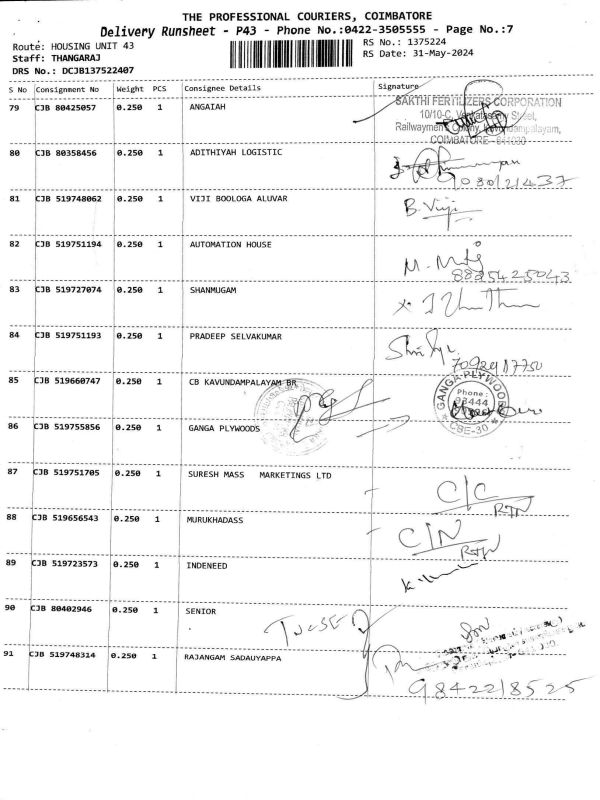 THE PROFESSIONAL COURIERS, COIMBATORE
Delivery Runsheet - P43 - Phone No.:0422-3505555 - Page No.:7
Route: HOUSING UNIT 43
RS No.: 1375224
Staff: THANGARAJ
RS Date: 31-May-2024
DRS No.: DCJB137522407
S No Consignment No Weight PCS Consignee Details Signature
79 CJB 80425057 0.250 1 ANGAIAH
SAKTHI FERTILIZERS CORPORATION
10/10-C, Street,
Railwaymen Colony,
COIMBATORE
80 CJB 80358456 0.250 1 ADITHIYAH LOGISTIC
9080121437
81 CJB 519748062 0.250 1 VIJI BOOLOGA ALUVAR
B. Viji
82 CJB 519751194 0.250 1 AUTOMATION HOUSE
M.
8825425043
83 CJB 519727074 0.250 1 SHANMUGAM
84 CJB 519751193 0.250 1 PRADEEP SELVAKUMAR
85 CJB 519660747 0.250 1 CB KAVUNDAMPALAYAM BR
GANGA PLYWOODS
Phone :
CBE-30
86 CJB 519755856 0.250 1 GANGA PLYWOODS
87 CJB 519751705 0.250 1 SURESH MASS MARKETINGS LTD
C/C
RTN
88 CJB 519656543 0.250 1 MURUKHADASS
C/N
RTN
89 CJB 519723573 0.250 1 INDENEED
90 CJB 80402946 0.250 1 SENIOR
91 CJB 519748314 0.250 1 RAJANGAM SADAUYAPPA
9842218525